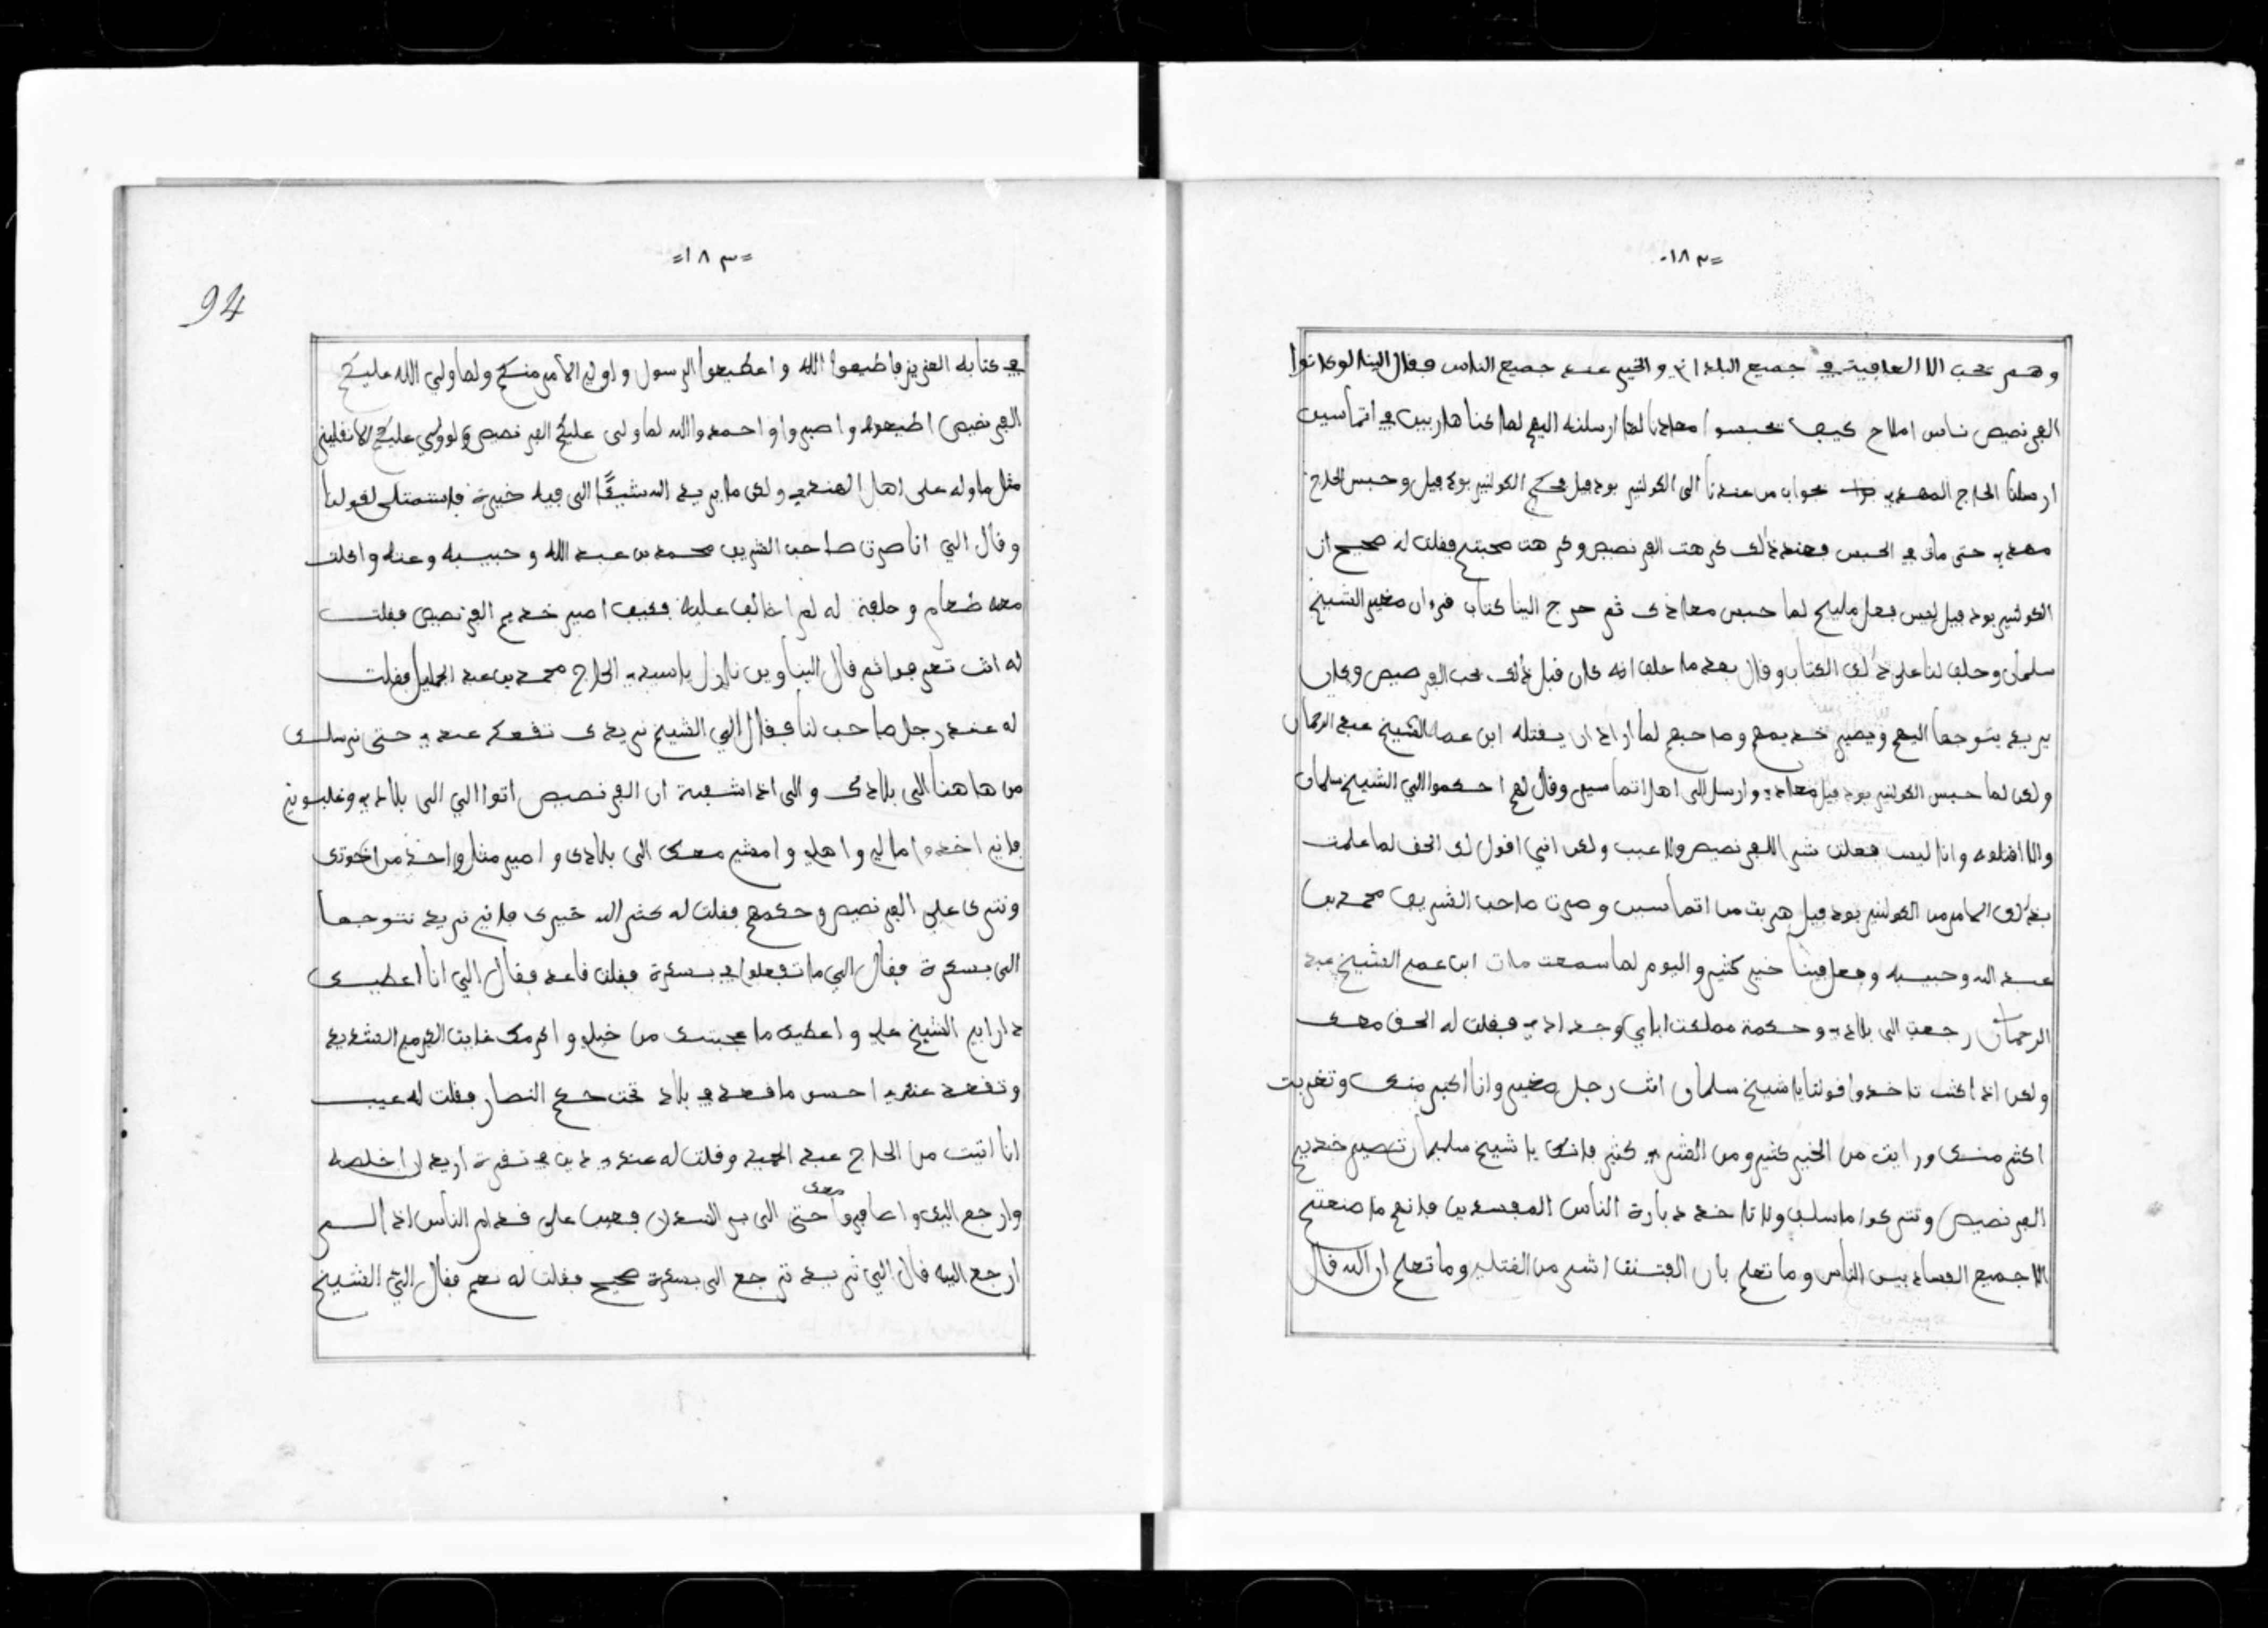 =١٨٢=
وهم نحب الا العافية في جميع البلدان والخير عند جميع الناس فقال الينا لو كانوا
الفرنصيص ناس املاح كيف تحبسوا معاذنا لما ارسلنه اليهم لما كنا هاربين في اتماسين
ارسلنا الحاج المهدي بجواب من عندنا الى الكولنير بودفيل فحكم الكولنير بودفيل وحبس الحاج
مهدي حتى مات في الحبس فعند ذالك كرهت الفرنصيص وكرهت صحبتهم فقلت له صحيح ان
الكولنير بودفيل ليس فعل مليح لما حبس معاذك ثم خرج الينا كتاب قرءان صغير الشيخ
سلمان وحلف لنا على ذلك الكتاب وقال بعد ما حلف انه كان قبل ذلك يحب الفرنصيص وكان
يريد يتوجها اليهم ويصير خديمهم وصاحبهم لما اراد ان يقتله ابن عمه الشيخ عبد الرحمان
ولكن لما حبس الكولنير بودفيل معاذي وارسل الى اهل اتماسين وقال لهم احكموا الي الشيخ سلمان
والا اقتلوه وانا ليس فعلت شر الا للفرنصيص ولا عيب ولكن انني اقول لك الحق لما علمت
بذلك الامر من الكولنير بودفيل هربت من اتماسين وصرت صاحب الشريف محمد بن
عبد الله وحبيبه وفعل فينا خير كثير واليوم لما سمعت مات ابن عمي الشيخ عبد
الرحمان رجعت الى بلادي وحكمة مملكت ابايي وجدادي فقلت له الحق معك
ولكن اذا كنت تاخذوا قولنا يا شيخ سلمان انت رجل صغير وانا اكبر منك وتغربت
اكثر منك ورايت من الخير كثير ومن الشر كثير فانك يا شيخ سليمان تصير خديم
الفرنصيص وتتركوا ما سلف ولا تاخذ دبارة الناس المفسدين فانهم ما صنعتهم
الا جميع الفساد بين الناس وما تعلم بان الفتنة اشر من القتل وما تعلم ان الله قال
=١٨٣=
94
في كتابه العزيز فاطيعوا الله واطيعوا الرسول واولي الامر منكم ولما ولي الله عليكم
الفرنصيص اطيعوه واصبروا واحمدوا الله لما ولى عليكم الفرنصيص ولو ولي عليكم الانقليز
مثل ما وله على اهل الهندي ولكن ما يريد الله شيئا الى فيه خيرة فاستمثلى لقولنا
وقال الي انا صرت صاحب الشريف محمد بن عبد الله وحبيبه وعنه واكلت
معه طعام وحلفة له لم اخالف عليه فكيف اصير خديم الفرنصيص فقلت
له انت تعرف ثم قال الينا وين نازل يا سيدي الحاج محمد بن عبد الجليل فقلت
له عند رجل صاحب لنا فقال الي الشيخ نريدك تقعد عندي حتى نرسلك
من هاهنا الى بلادك والى اذا شعبة ان الفرنصيص اتوا الي الى بلادي وغلبوني
فاني اخذوا مالي واهلي وامشي معك الى بلادك واصير مثل واحد من اخوتك
ونترك على الفرنصيص وحكمهم فقلت له كثر الله خيرك فاني نريد نتوجها
الى بسكرة فقال الي ما تفعلوا في بسكرة فقلت قاعد فقال الي انا اعطيك
دار ابي الشيخ علي واعطيك ما عجبتك من خيلي واكرمك غايت الكرم الشديد
وتقعد عندي احسن ما تقعد في بلاد تحت حكم النصار فقلت له عيب
انا اتيت من الحاج عبد الحميد وقلت له عندي دين في تقرة اريد ان اخلصه
وارجع اليك واسافروا معك حتى الى بر السودان فعيب على قدام الناس اذا لم
ارجع اليه قال الي تريد ترجع الى بسكرة صحيح فقلت له نعم فقال الي الشيخ